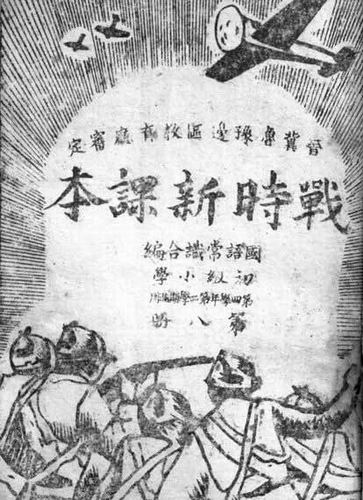 晉冀魯豫邊區教育廳審定
戰時新課本
國語常識合編
初級小學
第四學年第二學期用
第八冊